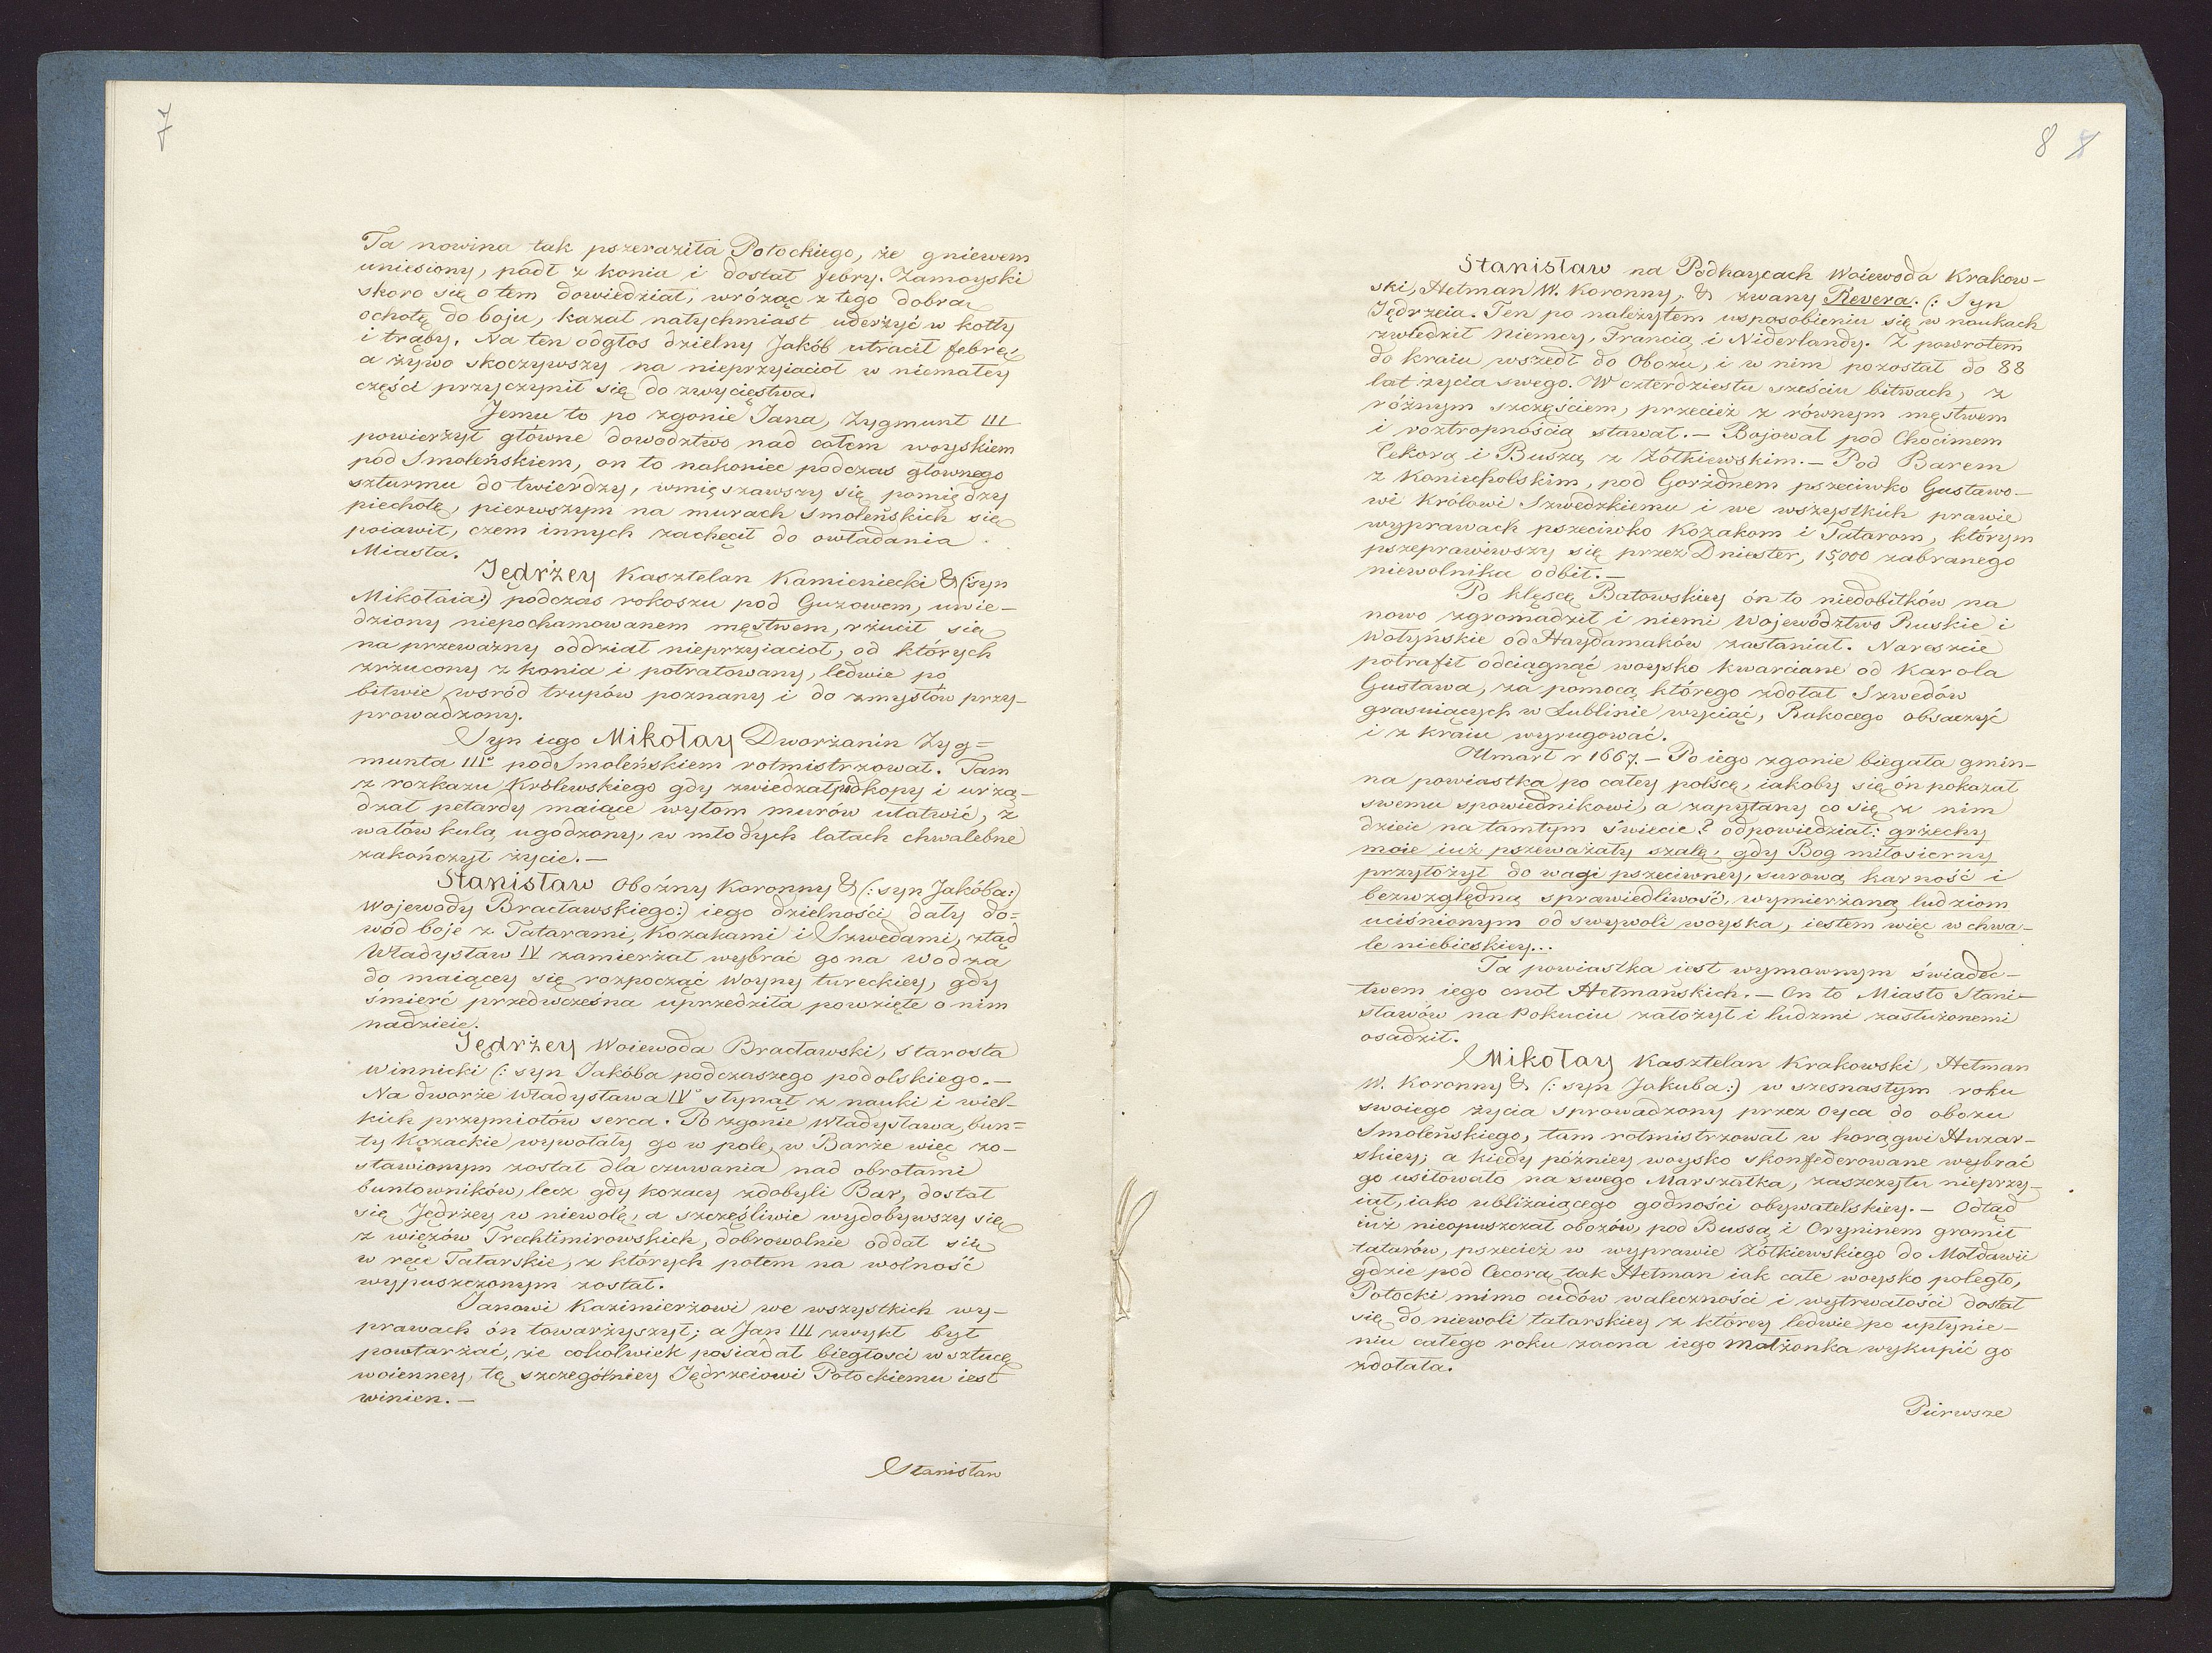 7
Ta nowina tak pszeraziła Potockiego, że gniewem
uniesiony, padł z konia i dostał febry. Zamoyski
skoro się o tem dowiedział, wróżąc z tego dobrą
ochotę do boju, kazał natychmiast uderżyć w kotły
i trąby. Na ten odgłos dzielny Jakób utracił febrę,
a żywo skoczywszy na nieprzyiaciół w niemałey
części przyczynił się do zwycięstwa.
Jemu to po zgonie Jana, Zygmunt III
powierżył główne dowodztwo nad całem woyskiem
pod Smoleńskiem, on to nakoniec podczas głownego
szturmu do twierdzy, wmięszawszy się pomiędzy
piechotę, pierwszym na murach Smoleńskich się
poiawił, czem innych zachęcił do owładania
Miasta.
Jędrżey Kasztelan Kamieniecki & (:syn
Mikołaia:) podczas rokoszu pod Guzowem, uwie-
dziony niepochamowanem męstwem, rżucił się
na przeważny oddział nieprzyiaciół, od których
zrzucony z konia i potratowany, ledwie po
bitwie wsród trupów poznany i do zmysłów przy-
prowadzony.
Syn iego Mikołay Dworżanin Zyg=
munta IIIº pod Smoleńskiem rotmistrzował. Tam
z rozkazu Królewskiego gdy zwiedzał podkopy i urżą-
dzał petardy maiące wyłom murów ułatwić, z
wałów kulą ugodzony, w młodych latach chwalebne
zakończył życie.—
Stanisław Oboźny Koronny & (: syn Jakóba:)
Wojewody Bracławskiego:) iego dzielności dały do=
wód boje z Tatarami, Kozakami i Szwedami, ztąd
Władysław IV zamierżał wybrać go na Wodza
do maiącey się rozpocząć Woyny tureckiey, gdy
śmierć przedwczesna uprzedziła powzięte o nim
nadzieie.
Jędrżey Woiewoda Bracławski, starosta
winnicki (: syn Jakóba podczaszego podolskiego.—
Na dworże Władysława IVº słynął z nauki i wiel-
kich przymiotów serca. Po zgonie Władysława, bun=
ty Kozackie wywołały go w pole, w Barże więc zo-
stawionym został dla czuwania nad obrotami
buntowników, lecz gdy kozacy zdobyli Bar, dostał
się Jędrżey w niewolę, a szczęśliwie wydobywszy się
z więzów Trechtimirowskich, dobrowolnie oddał się
w ręce Tatarskie, z których potem na wolność
wypuszczonym został.
Janowi Kazimierżowi we wszystkich wy-
prawach ón towarżyszył; a Jan III zwykł był
powtarżać, że cokolwiek posiadał biegłości w sztuce
woienney, tę szczególniey Jędrzeiowi Potockiemu iest
winien.—
Stanisław
8
Stanisław na Podhaycach Woiewoda Krakow-
ski, Hetman W. Koronny, & zwany Revera. (: Syn
Jędrzeia. Ten po należytem usposobieniu się w naukach
zwiedził Niemcy, Francią i Niderlandy. Z powrotem
do kraiu wszedł do Obozu, i w nim pozostał do 88
lat życia swego. W czterdziestu sześciu bitwach, z
różnym szczęściem, przecież z równym męstwem
i roztropnością stawał.— Bojował pod Chocimem
Cekorą i Buszą z Żółkiewskim.— Pod Barem
z Koniecpolskim, pod Gorżdnem pszeciwko Gustawo-
wi Królowi Szwedzkiemu i we wszystkich prawie
wyprawach pszeciwko Kozakom i Tatarom, którym
pszeprawiwszy się przez Dniester, 15,000 zabranego
niewolnika odbił.—
Po klęscę Batowskiey ón to niedobitków na
nowo zgromadził i niemi Województwo Ruskie i
Wołyńskie od Haydamaków zasłaniał. Nareszcie
potrafił odciągnąć woysko kwarciane od Karola
Gustawa, za pomocą którego zdołał Szwedów
grasuiących w Lublinie wyciąć, Rakocego obsaczyć
i z kraiu wyrugować.
Umarł r 1667.— Po iego zgonie biegała gmin-
na powiastka po całey polscę, iakoby się ón pokazał
swemu spowiednikowi, a zapytany co się z nim
dzieie na tamtym świecie? odpowiedział: grżechy
moie iuż pszeważały szalę, gdy Bog miłosierny
przyłożył do wagi pszeciwney, surową karność i
bezwzględną sprawiedliwość, wymierżaną ludziom
uciśnionym od swywoli woyska, iestem więc w chwa-
le niebieskiey...
Ta powiastka iest wymownym świadec-
twem iego cnot Hetmańskich.— On to Miasto Stani-
sławów na Pokuciu założył i ludzmi zasłużonemi
osadził.
Mikołay Kasztelan Krakowski, Hetman
W. Koronny & (: syn Jakuba:) w szesnastym roku
swoiego życia sprowadzony przez Oyca do obozu
Smoleńskiego, tam rotmistrzował w horągwi Huzar-
skiey, a kiedy późniey woysko skonfederowane wybrać
go usiłowało na swego Marszałka, zaszczytu nieprzy-
iął, iako ubliżaiącego godności obywatelskiey.— Odtąd
iuż nieopuszczał obozów, pod Bussą i Oryninem gromił
tatarów, pszecież w wyprawie Żółkiewskiego do Mołdawii
gdzie pod Cecorą tak Hetman iak całe woysko poległo,
Potocki mimo cudów waleczności i wytrwałości dostał
się do niewoli tatarskiey z którey ledwie po upłynie-
niu całego roku zacna iego Małżonka wykupić go
zdołała.
Pierwsze